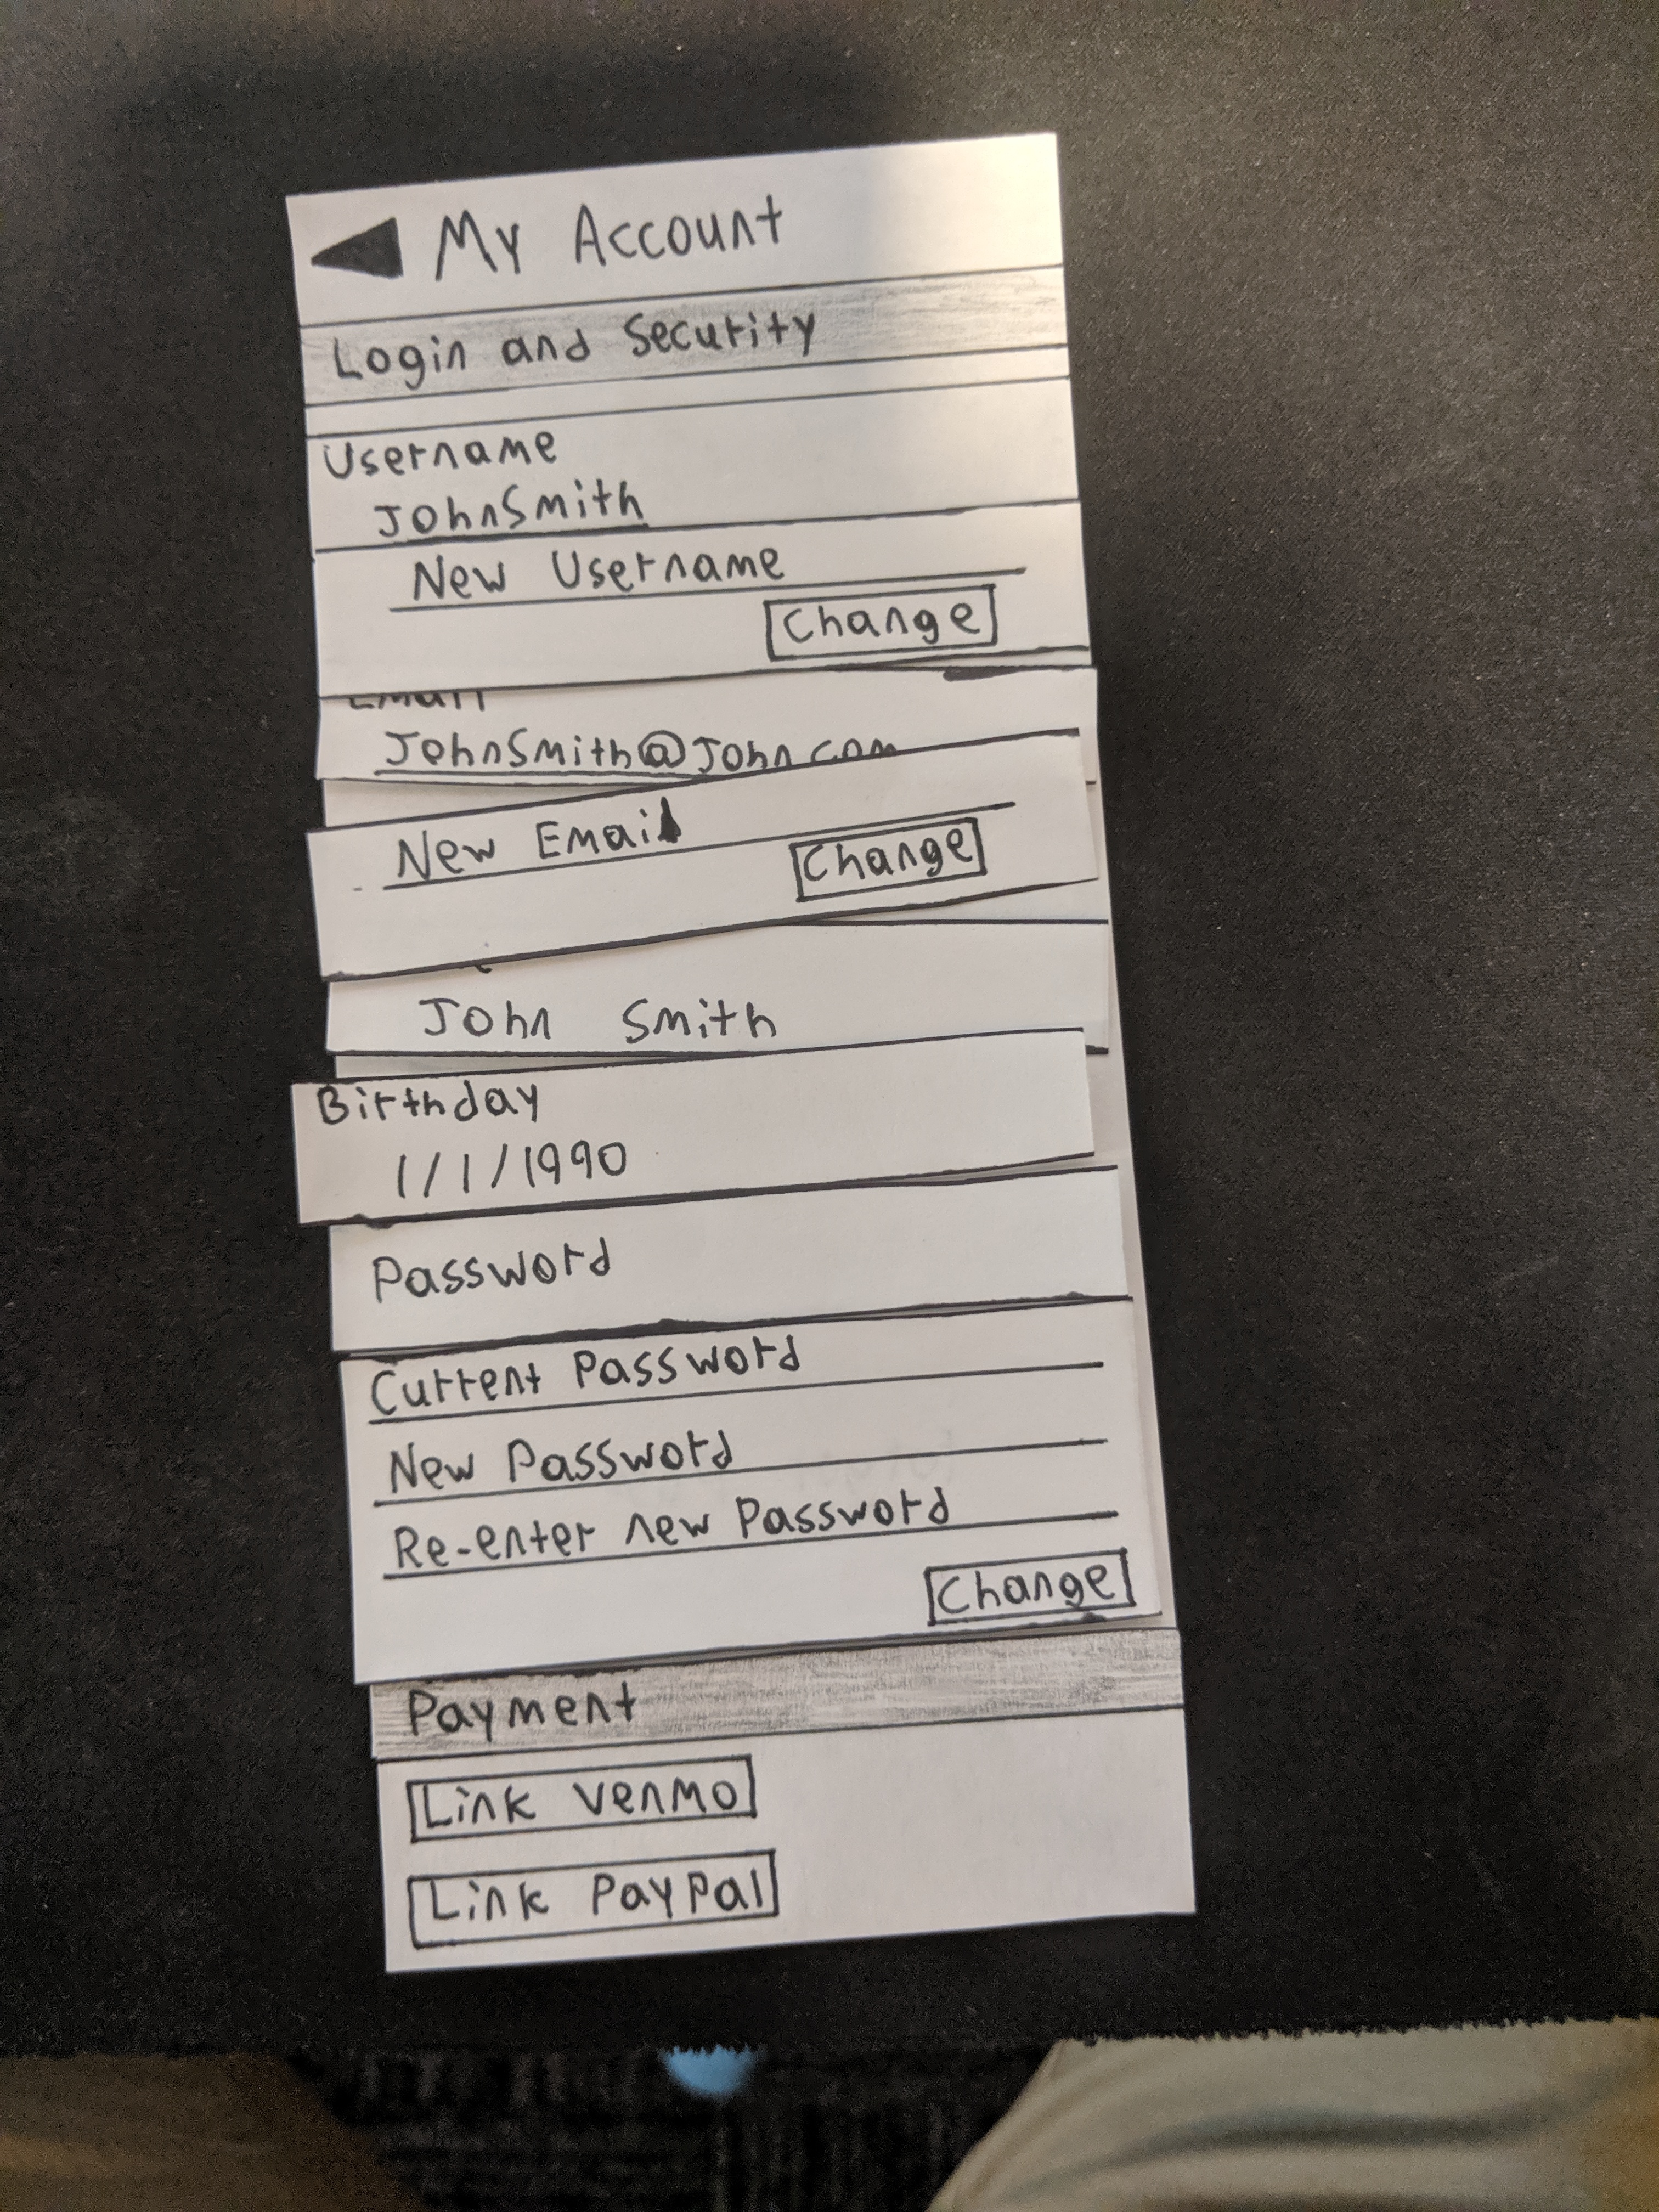 My Account
Login and Security
Username
JohnSmith
New Username
Change
Email
JohnSmith@John.com
New Email
Change
John Smith
Birthday
1/1/1990
Password
Current Password
New Password
Re-enter new Password
Change
Payment
Link Venmo
Link PayPal